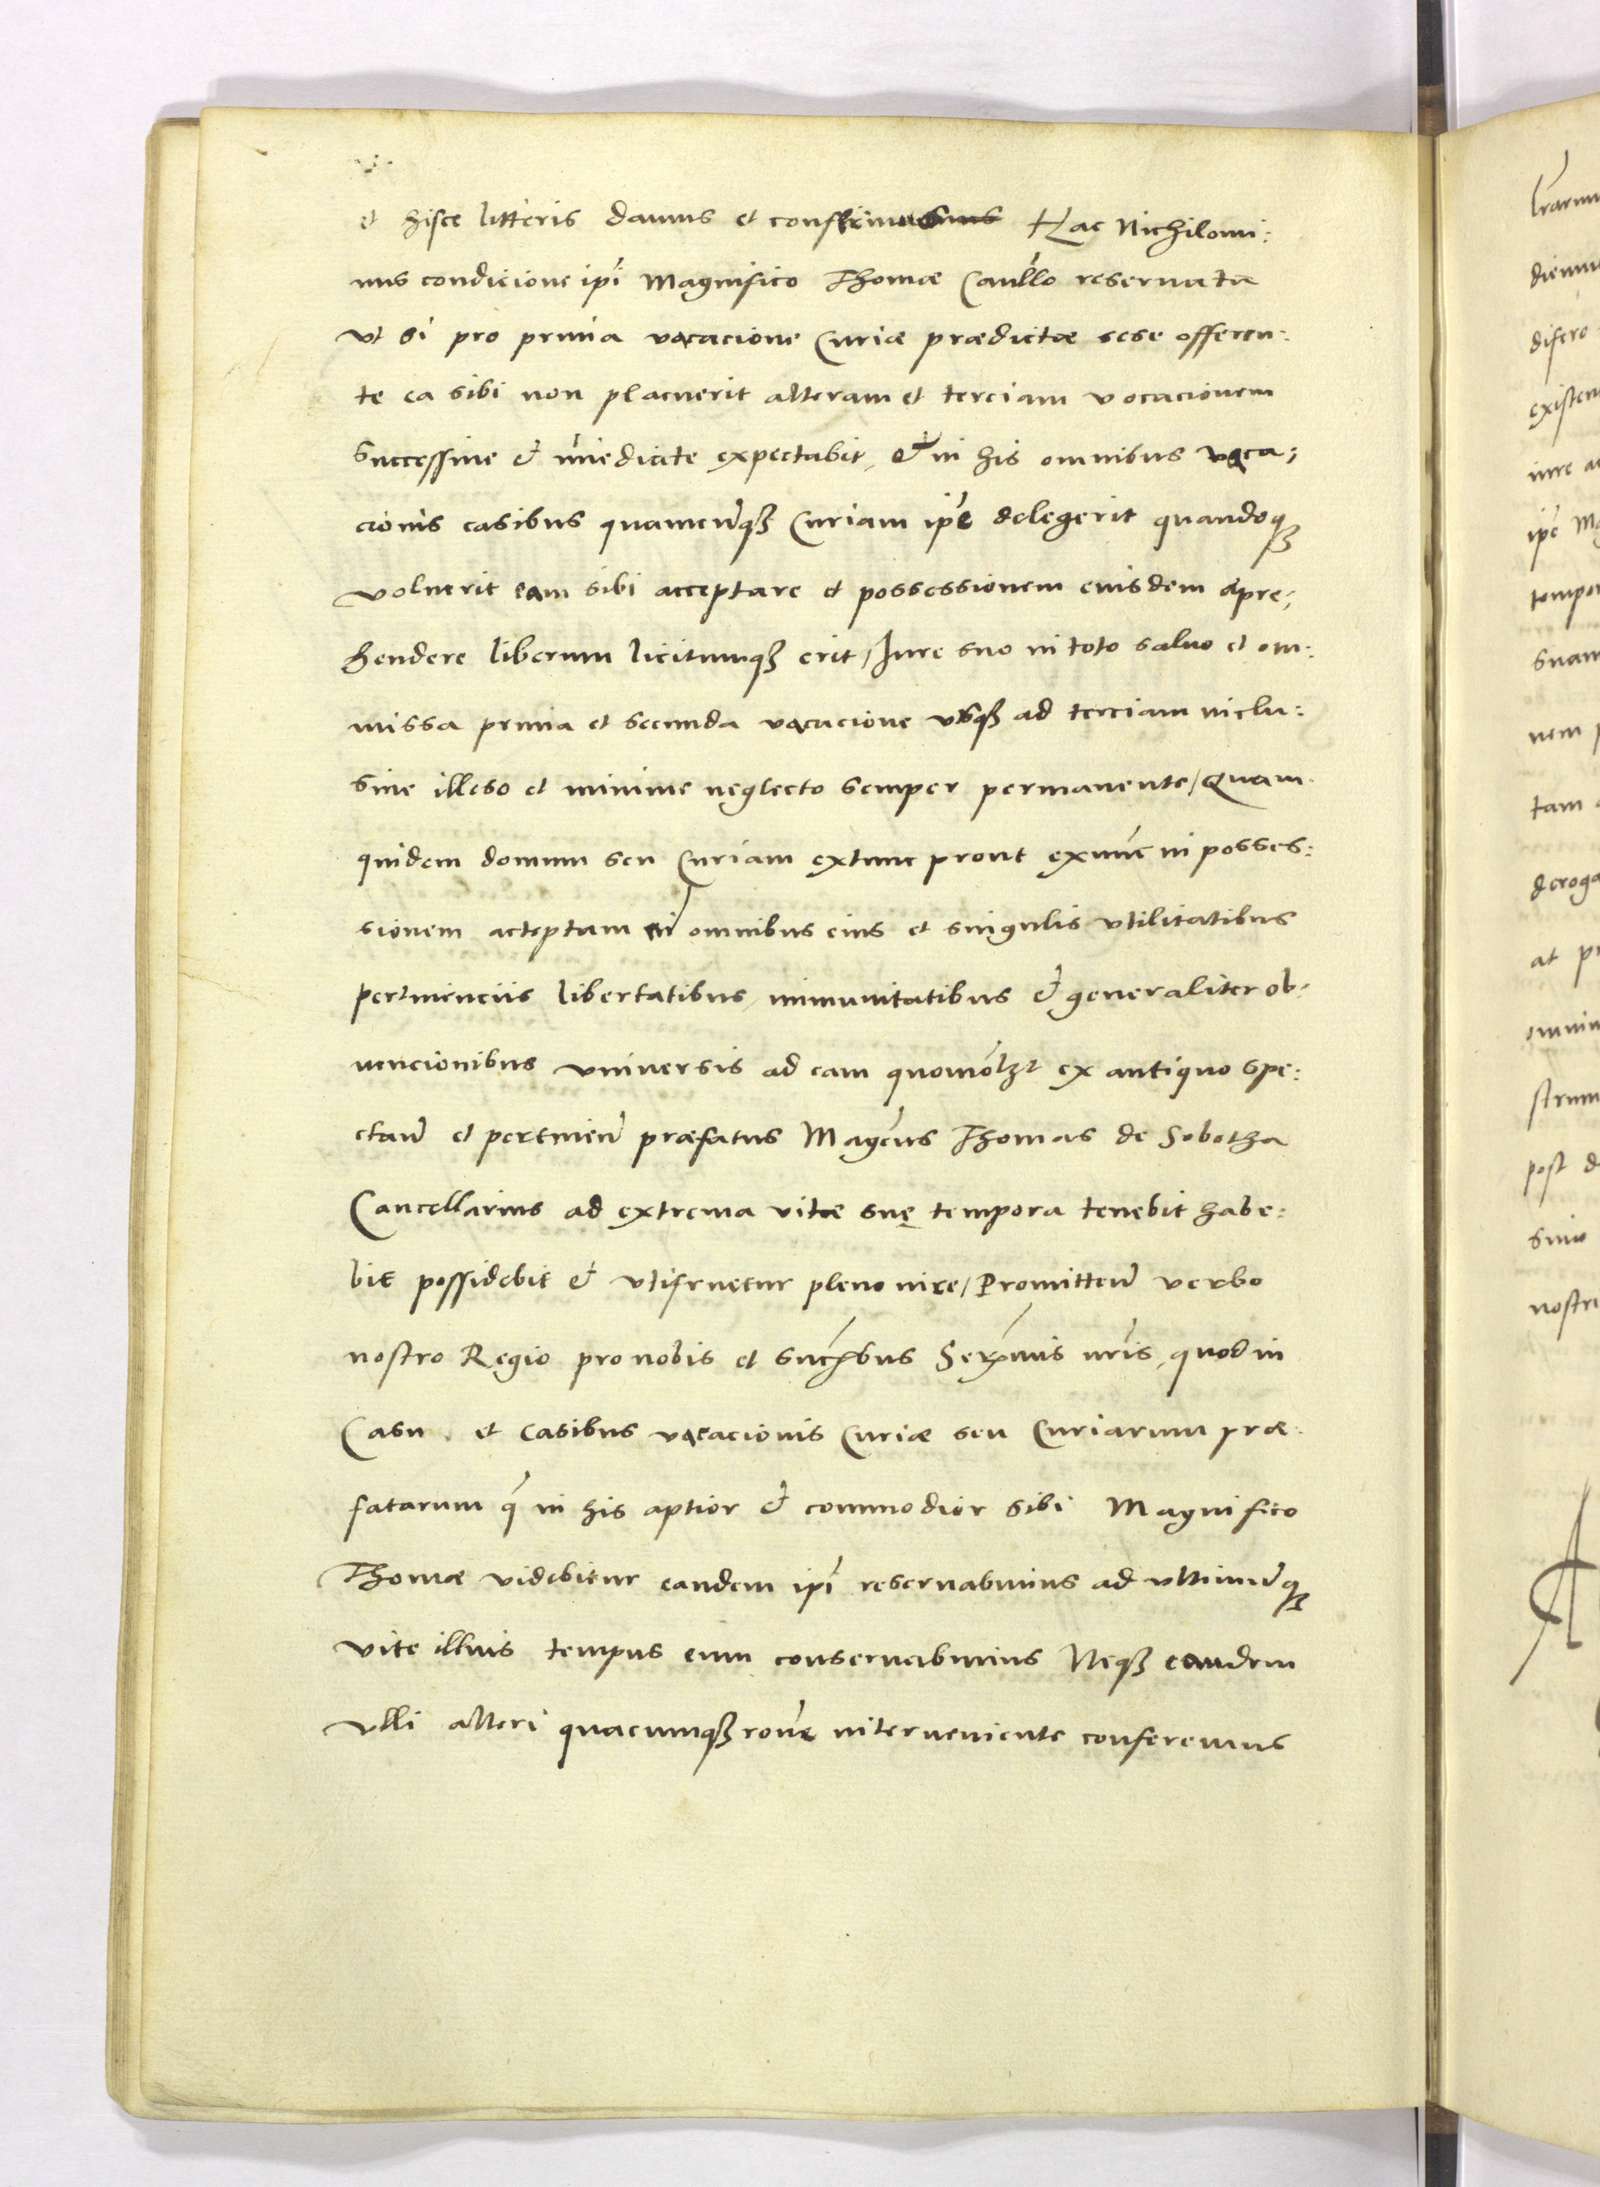 et hisce litteris damus et confirmamus Hac Nichilomi:
nus condicione ip̄i Magnifico Thomæ Can̄llo reservata
Vt si pro prima vacacione Curiæ prædictæ sese offeren:
te ea sibi non placuerit alteram et terciam vocacionem
Successiue & īmediate expectabit, & in his omnibus vaca:
cionis casibus quamcūqȝ Curiam ip̄e delegerit quandoqȝ
voluerit eam sibi acceptare et possessionem eiusdem apre:
hendere liberum licitumqȝ erit / Iure suo in toto saluo et om:
missa prima et secunda vacacione vsqȝ ad terciam inclu:
siue illeso et minime neglecto semper permanente / Quam
quidem domum seu Curiam extunc prout exnūc in posses:
sionem acceptam omnibus eius et singulis vtilitatibus
pertinenciis libertatibus, immunitatibus & generaliter ob:
uencionibus vniuersis ad eam quomolȝt ex antiquo spe:
ctan̄ et pertinen̄ præfatus Maḡcus Thomas de Sobotha
Cancellarius ad extrema vitæ suę tempora tenebit habe:
bit possidebit & vtifruetur pleno iure / Promitten̄ verbo
nostro Regio pro nobis et Succ̄bus Ser̄mis n̄ris, quod in
Casu et casibus vacacionis Curiæ seu Curiarum præ:
fatarum q̄ in his aptior & commodior sibi Magnifico
Thomæ videbitur eandem ip̄i reseruabimus ad vltimūqȝ
vite illius tempus eum conseruabimus Neqȝ eamdem
vlli alteri quacumqȝ ro̅ne interueniente conferemus